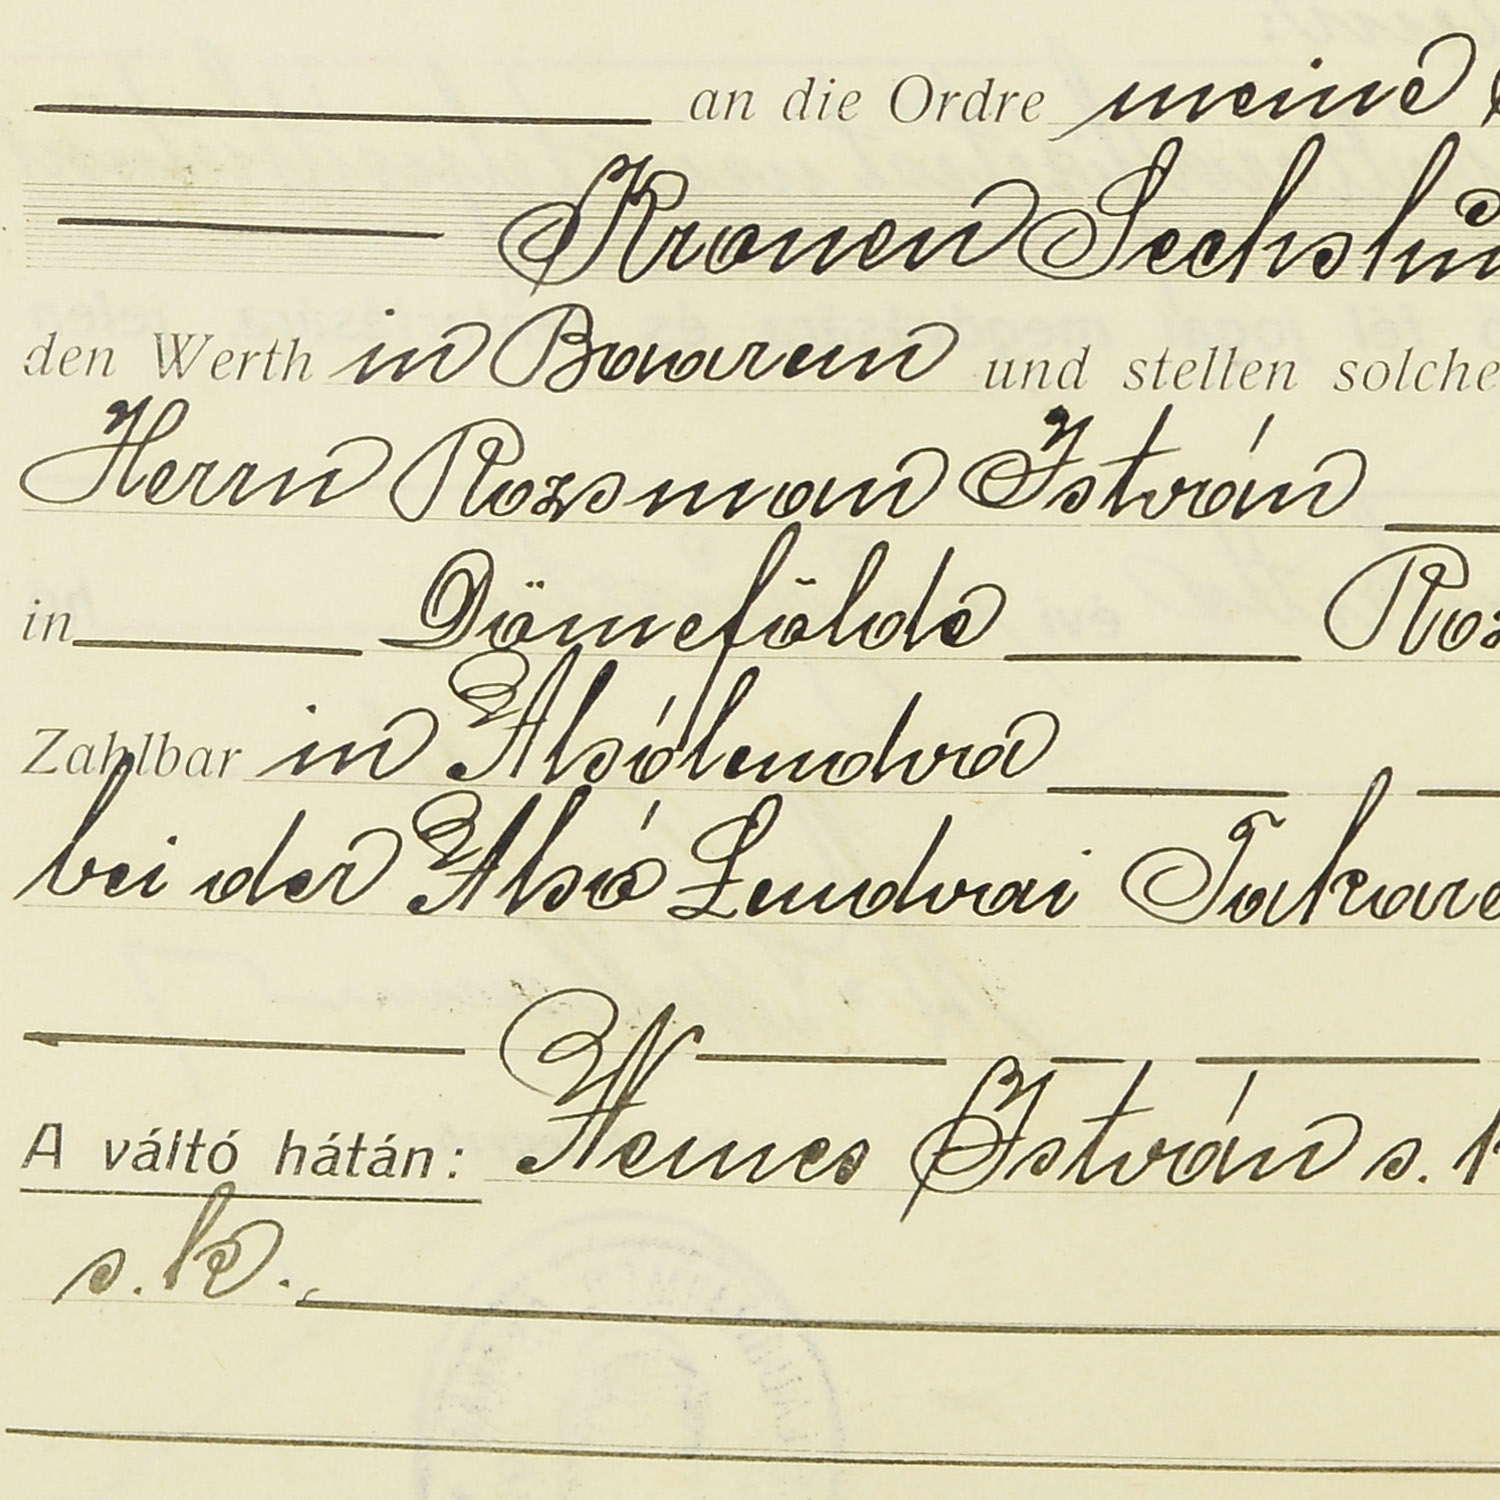 an die Ordre meine
Kronen Sechshun
den Werth in Baaren und stellen solche
Herrn Rozsman István
in Dömefölde Roz
Zahlbar in Alsólendva
bei der Alsó Lendvai Takare
A váltó hátán: Nemes István s. k
s. k.